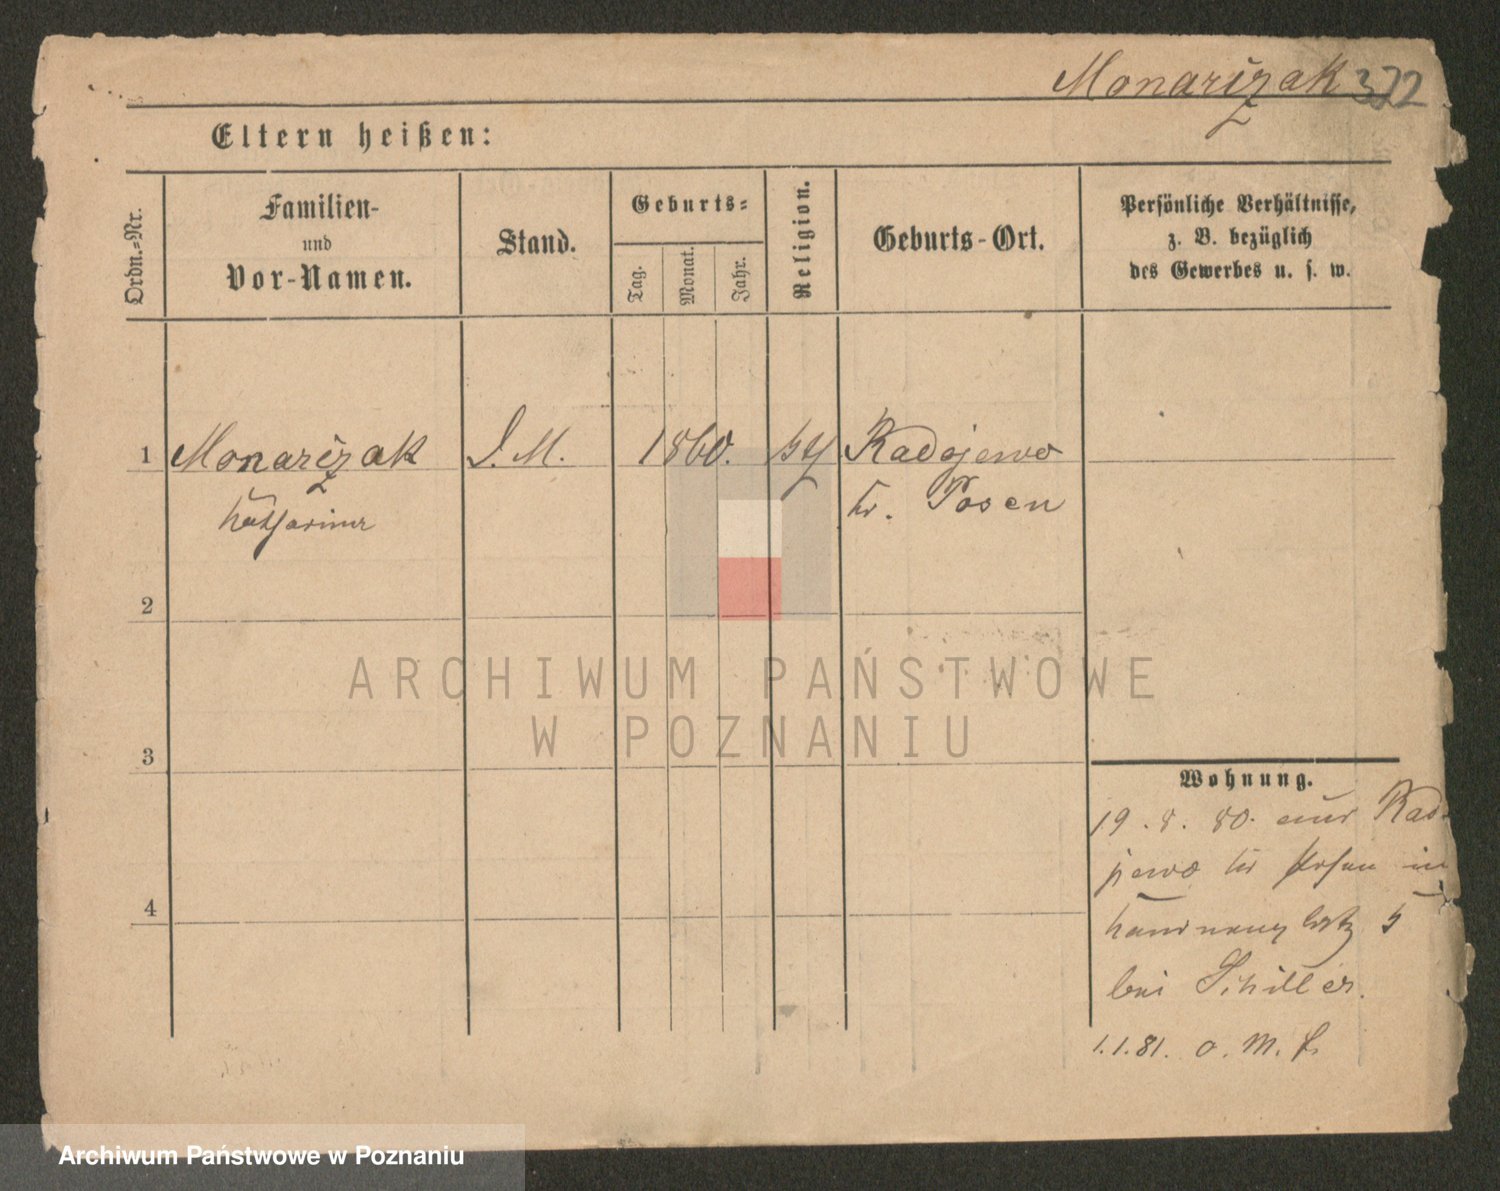 Monarizak 372
Eltern heißen:
Ordn.-Nr.
Familien-
und
Vor-Namen.
Stand.
Geburts-
Tag.
Monat.
Jahr.
Religion.
Geburts-Ort.
Persönliche Verhältnisse,
z. B. bezüglich
des Gewerbes u. s. w.
1 Monarizak D. M. 1860. Radojewo
Katharina Kr. Posen
2
3
4
Wohnung.
19. 8. 80. aus Rado-
jewo Kr Posen in
bei Schiller.
1.1.81. o. M.
ARCHIWUM PAŃSTWOWE
W POZNANIU
Archiwum Państwowe w Poznaniu